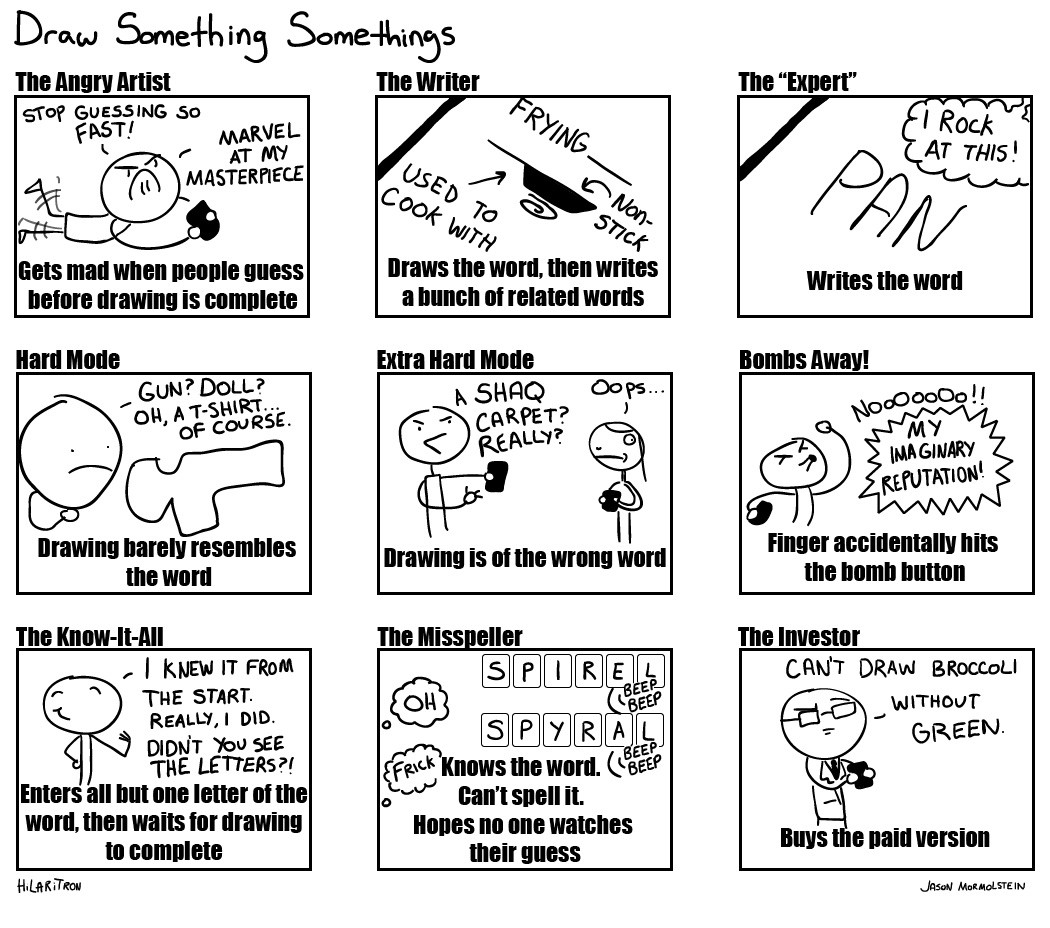 Draw Something Somethings
The Angry Artist
STOP GUESSING SO
FAST!
MARVEL
AT MY
MASTERPIECE
Gets mad when people guess
before drawing is complete
The Writer
FRYING __
USED TO
COOK WITH
NON-
STICK
Draws the word, then writes
a bunch of related words
The “Expert”
I ROCK
AT THIS!
PAN
Writes the word
Hard Mode
GUN? DOLL?
OH, A T-SHIRT...
OF COURSE.
Drawing barely resembles
the word
Extra Hard Mode
A SHAQ
CARPET?
REALLY?
OOPS...
Drawing is of the wrong word
Bombs Away!
NOOOOOOO!!
MY
IMAGINARY
REPUTATION!
Finger accidentally hits
the bomb button
The Know-It-All
I KNEW IT FROM
THE START.
REALLY, I DID.
DIDN'T YOU SEE
THE LETTERS?!
Enters all but one letter of the
word, then waits for drawing
to complete
The Misspeller
SPIREL
OH
BEEP
BEEP
SPYRAL
FRICK
BEEP
BEEP
Knows the word.
Can’t spell it.
Hopes no one watches
their guess
The Investor
CAN'T DRAW BROCCOLI
WITHOUT
GREEN.
Buys the paid version
HiLARiTRON
JASON MORMOLSTEIN